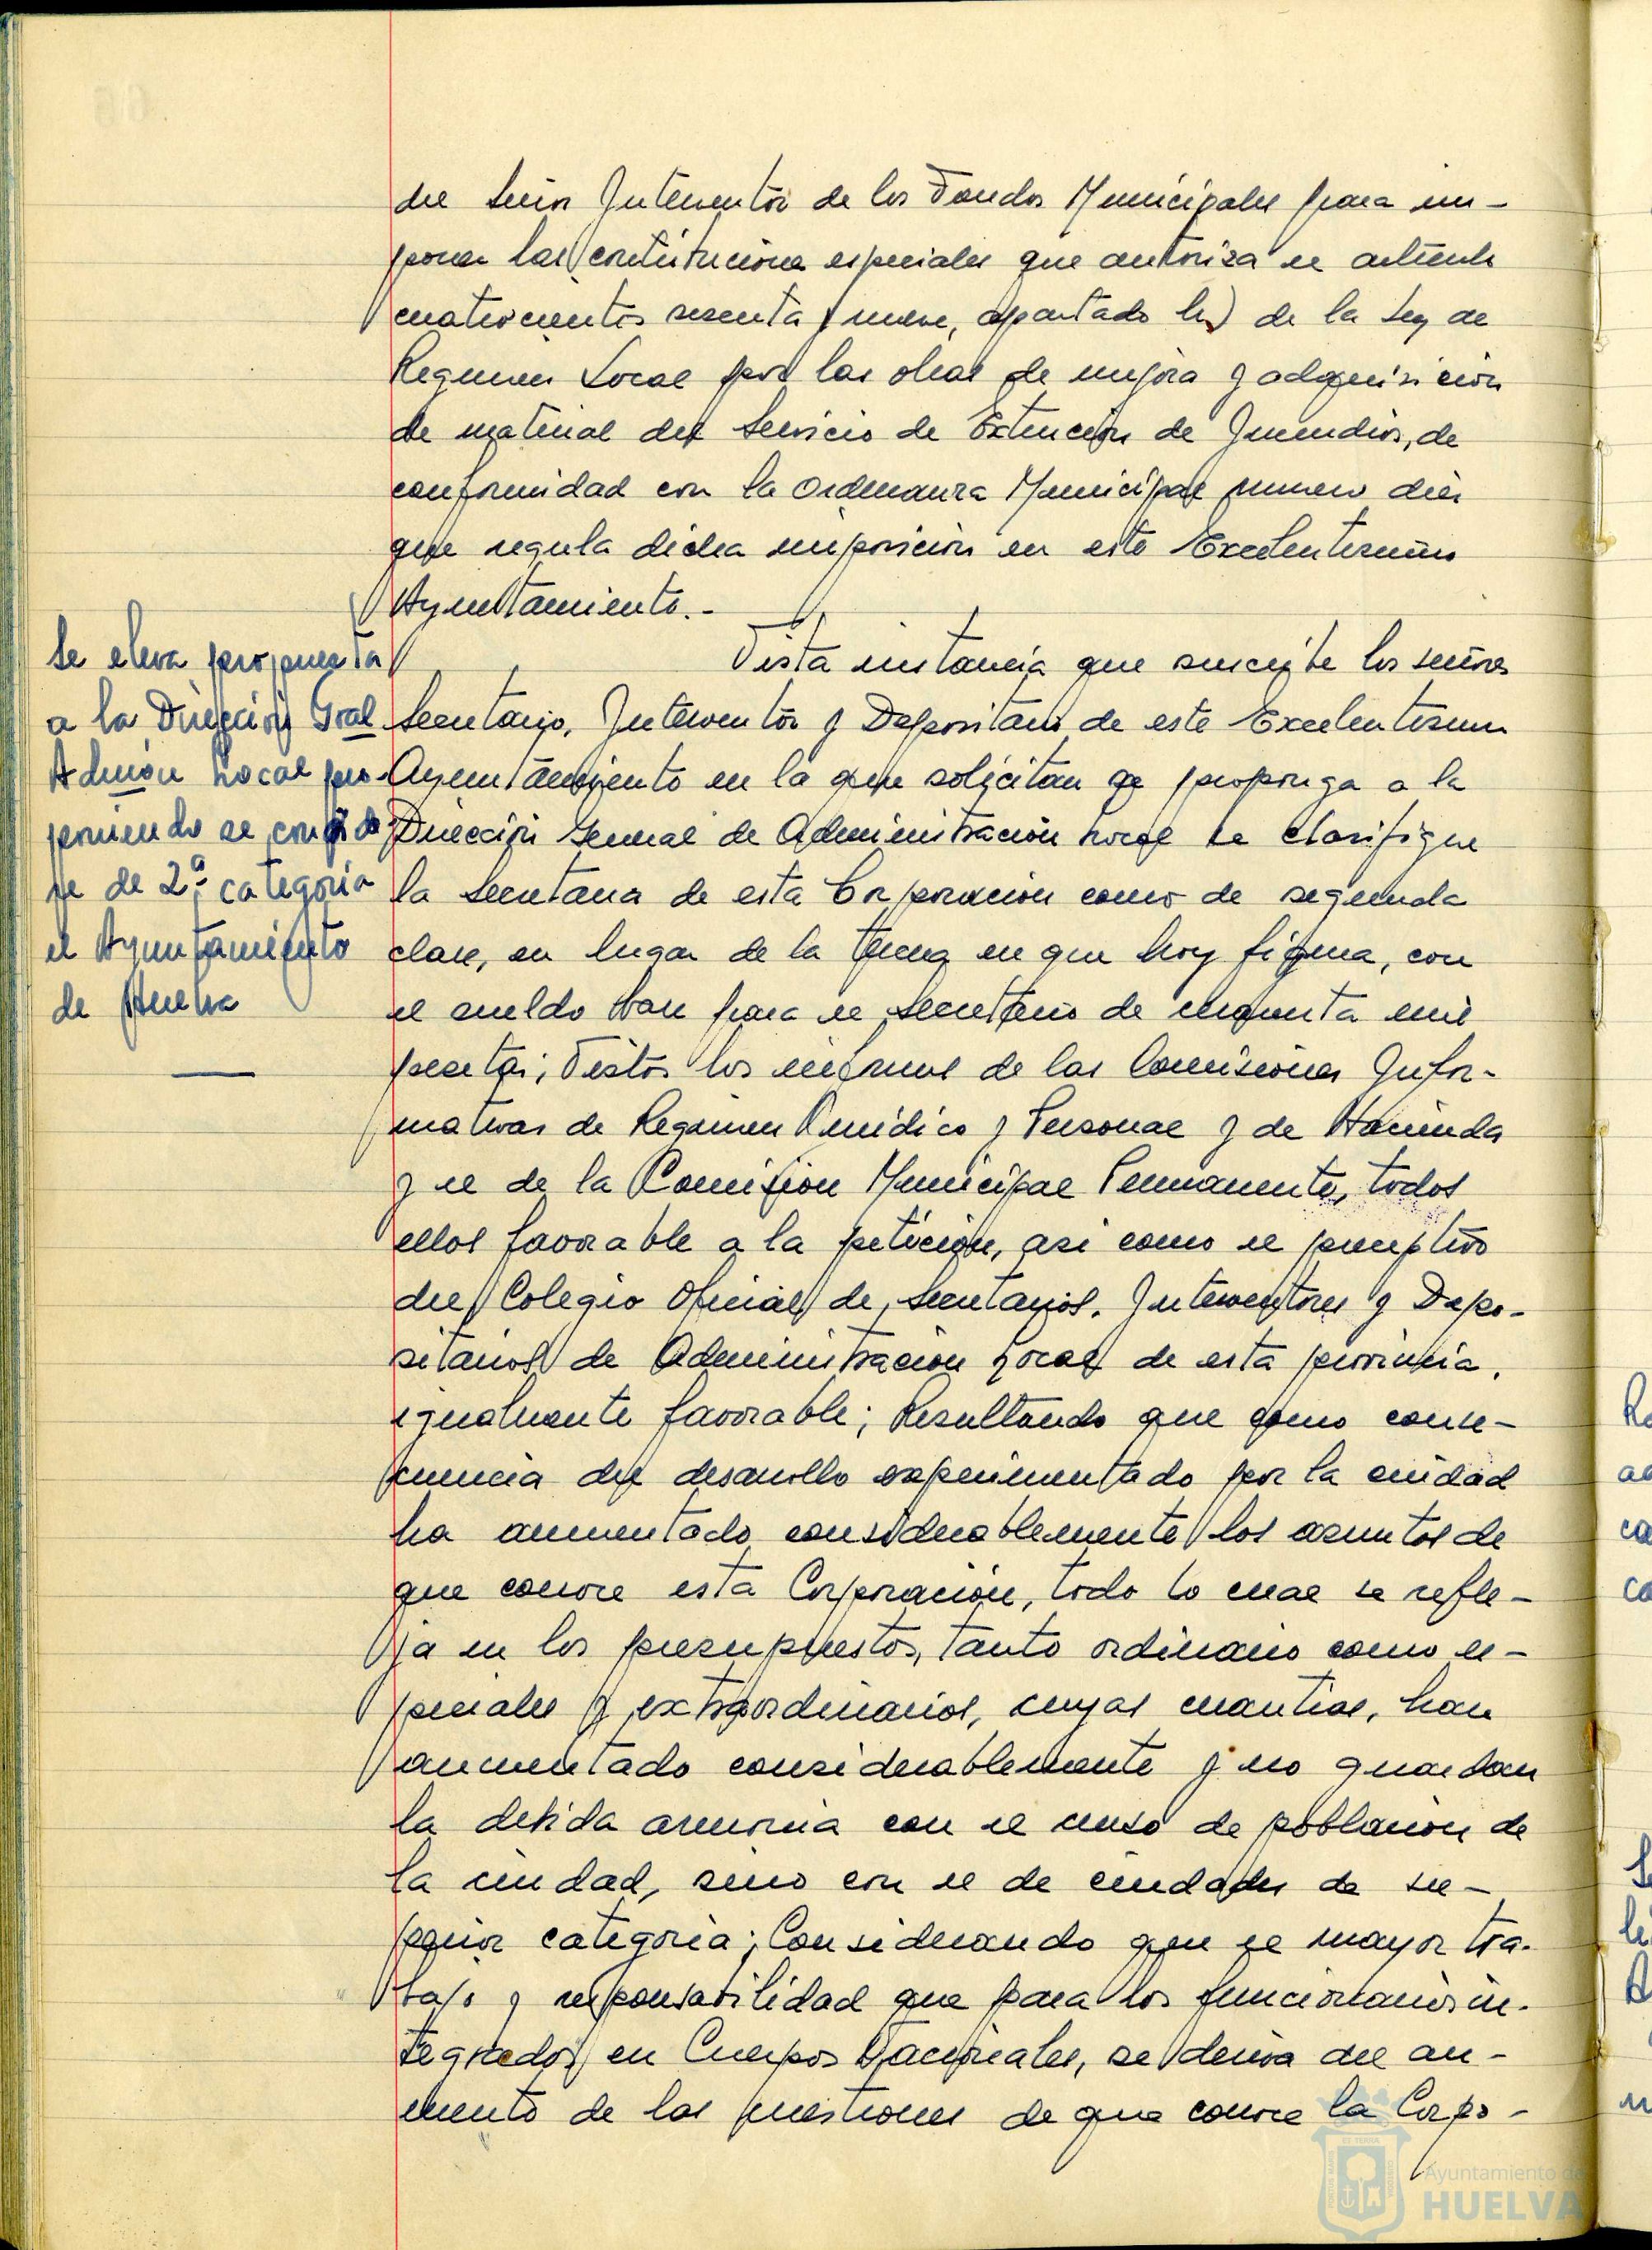 del Señor Interventor de los Fondos Municipales para im-
poner las contribuciones especiales que autoriza el artículo
cuatrocientos sesenta y nueve, apartado b) de la Ley de
Regimen Local por las obras de mejora y adquisición
de material del Servicio de Extinción de Incendios, de
conformidad con la Ordenanza Municipal numero diez
que regula dicha imposición en este Excelentisimo
Ayuntamiento.-
Se eleva propuesta
a la Dirección Gral
Admón Local pro-
poniendo se considere
de 2ª categoria
el Ayuntamiento
de Huelva
Vista instancia que suscribe los señores
Secretario, Interventor y Depositario de este Excelentisimo
Ayuntamiento en la que solicitan se proponga a la
Dirección General de Administración Local se clasifique
la Secretaria de esta Corporación como de segunda
clase, en lugar de la tercera en que hoy figura, con
el sueldo base para el Secretario de cincuenta mil
pesetas; Vistos los informes de las Comisiones Infor-
mativas de Regimen Juridico y Personal y de Hacienda
y el de la Comisión Municipal Permanente, todos
ellos favorable a la petición, asi como el preceptivo
del Colegio Oficial de Secretarios, Interventores y Depo-
sitarios de Administración Local de esta provincia,
igualmente favorable; Resultando que como conse-
cuencia del desarrollo experimentado por la ciudad
ha aumentado considerablemente los asuntos de
que conoce esta Corporación, todo lo cual se refle-
ja en los presupuestos, tanto ordinario como es-
peciales y extraordinarios, cuyas cuantias, han
aumentado considerablemente y no guardan
la debida armonia con el censo de población de
la ciudad, sino con el de ciudades de su-
perior categoria; Considerando que el mayor tra-
bajo y responsabilidad que para los funcionarios in-
tegrados en Cuerpos Nacionales, se deriva del au-
mento de las cuestiones de que conoce la Corpo-
Ayuntamiento de
HUELVA